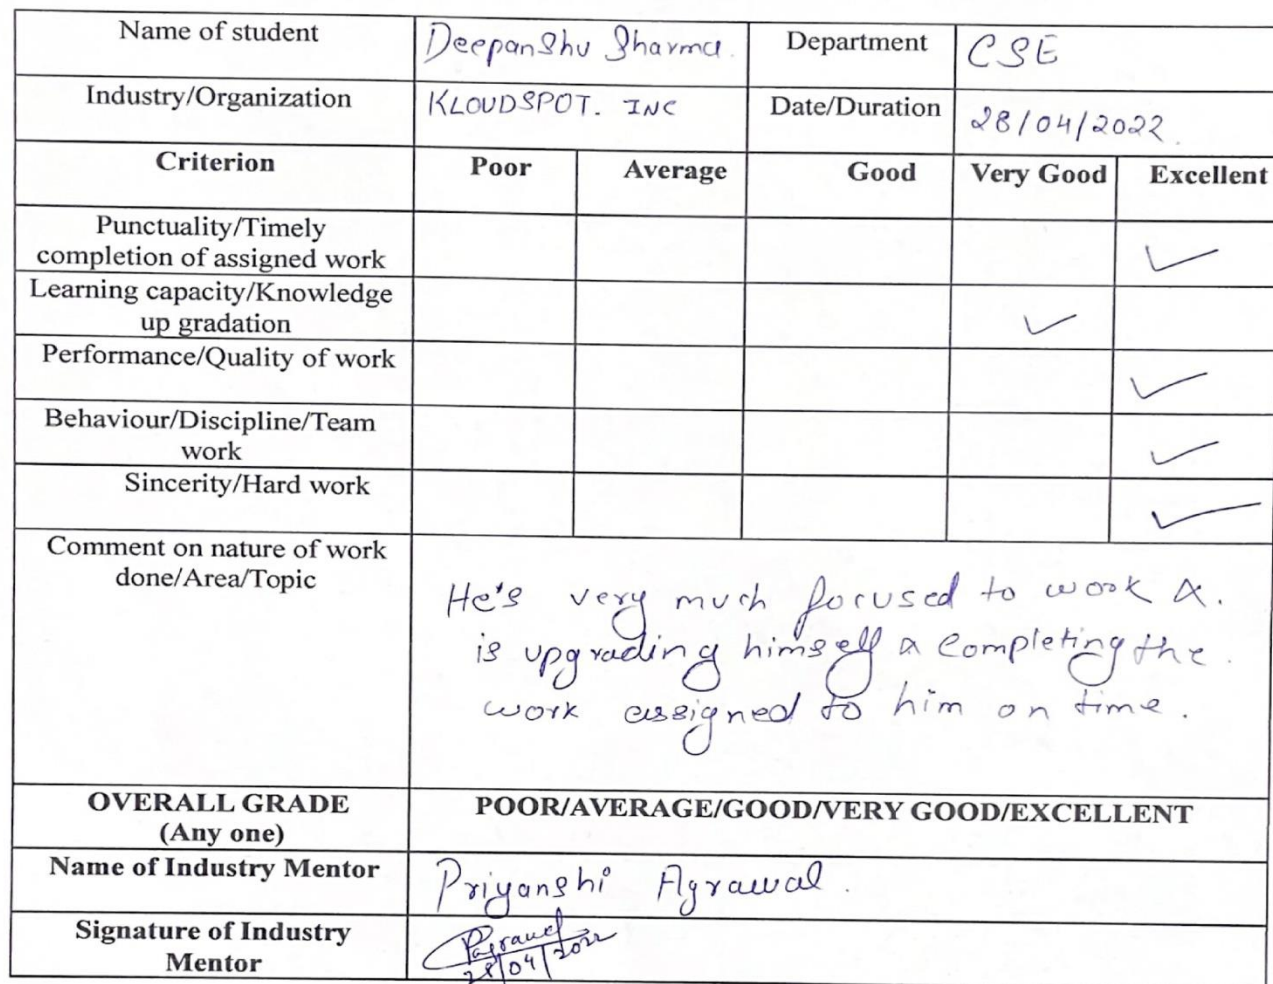 Name of student Deepanshu Sharma. Department CSE
Industry/Organization KLOUDSPOT. INC Date/Duration 28/04/2022.
Criterion Poor Average Good Very Good Excellent
Punctuality/Timely
completion of assigned work ✓
Learning capacity/Knowledge
up gradation ✓
Performance/Quality of work ✓
Behaviour/Discipline/Team
work ✓
Sincerity/Hard work ✓
Comment on nature of work
done/Area/Topic
He's very much focused to work &.
is upgrading himself & completing the.
work assigned to him on time.
OVERALL GRADE
(Any one)
POOR/AVERAGE/GOOD/VERY GOOD/EXCELLENT
Name of Industry Mentor Priyanshi Agrawal.
Signature of Industry
Mentor
Pagrawal
28/04/2022